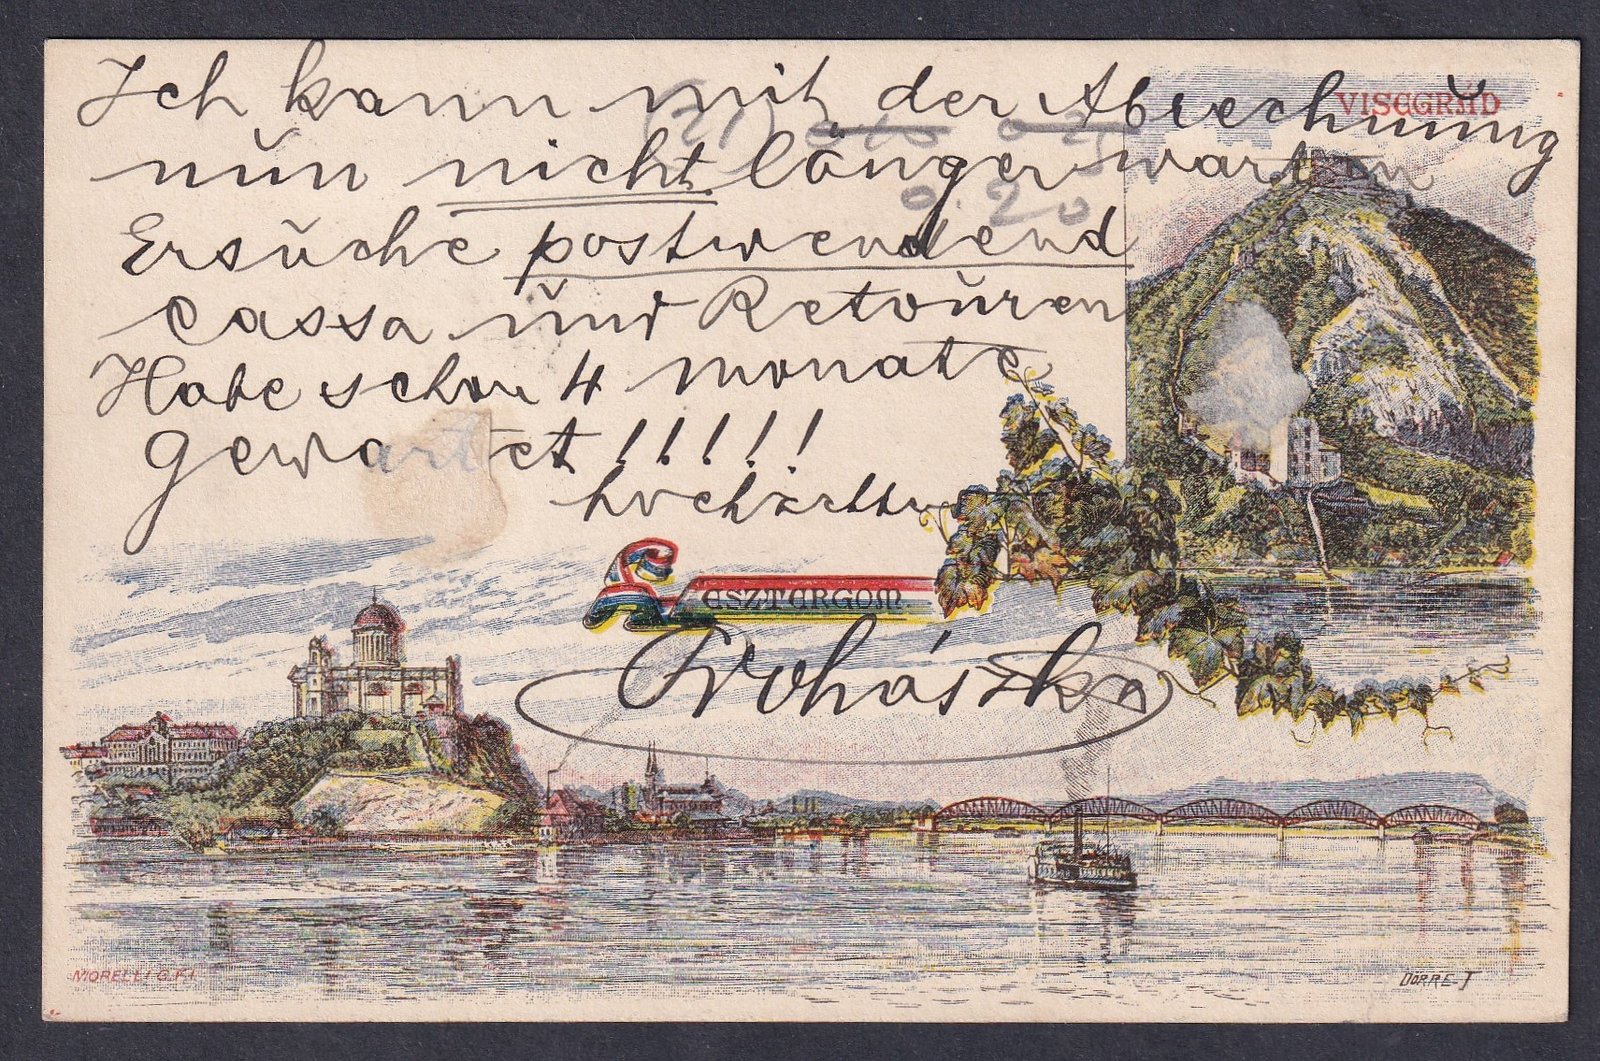 Ich kann mit der Abrechnung
VISEGRÁD
nun nicht länger warten
Ersuche postwendend
Cassa und Retouren
Habe schon 4 monate
gewartet !!!!!
ESZTERGOM
Prohászka
MORELLI G. F. I.
DÖRRE T
(21)
0.20